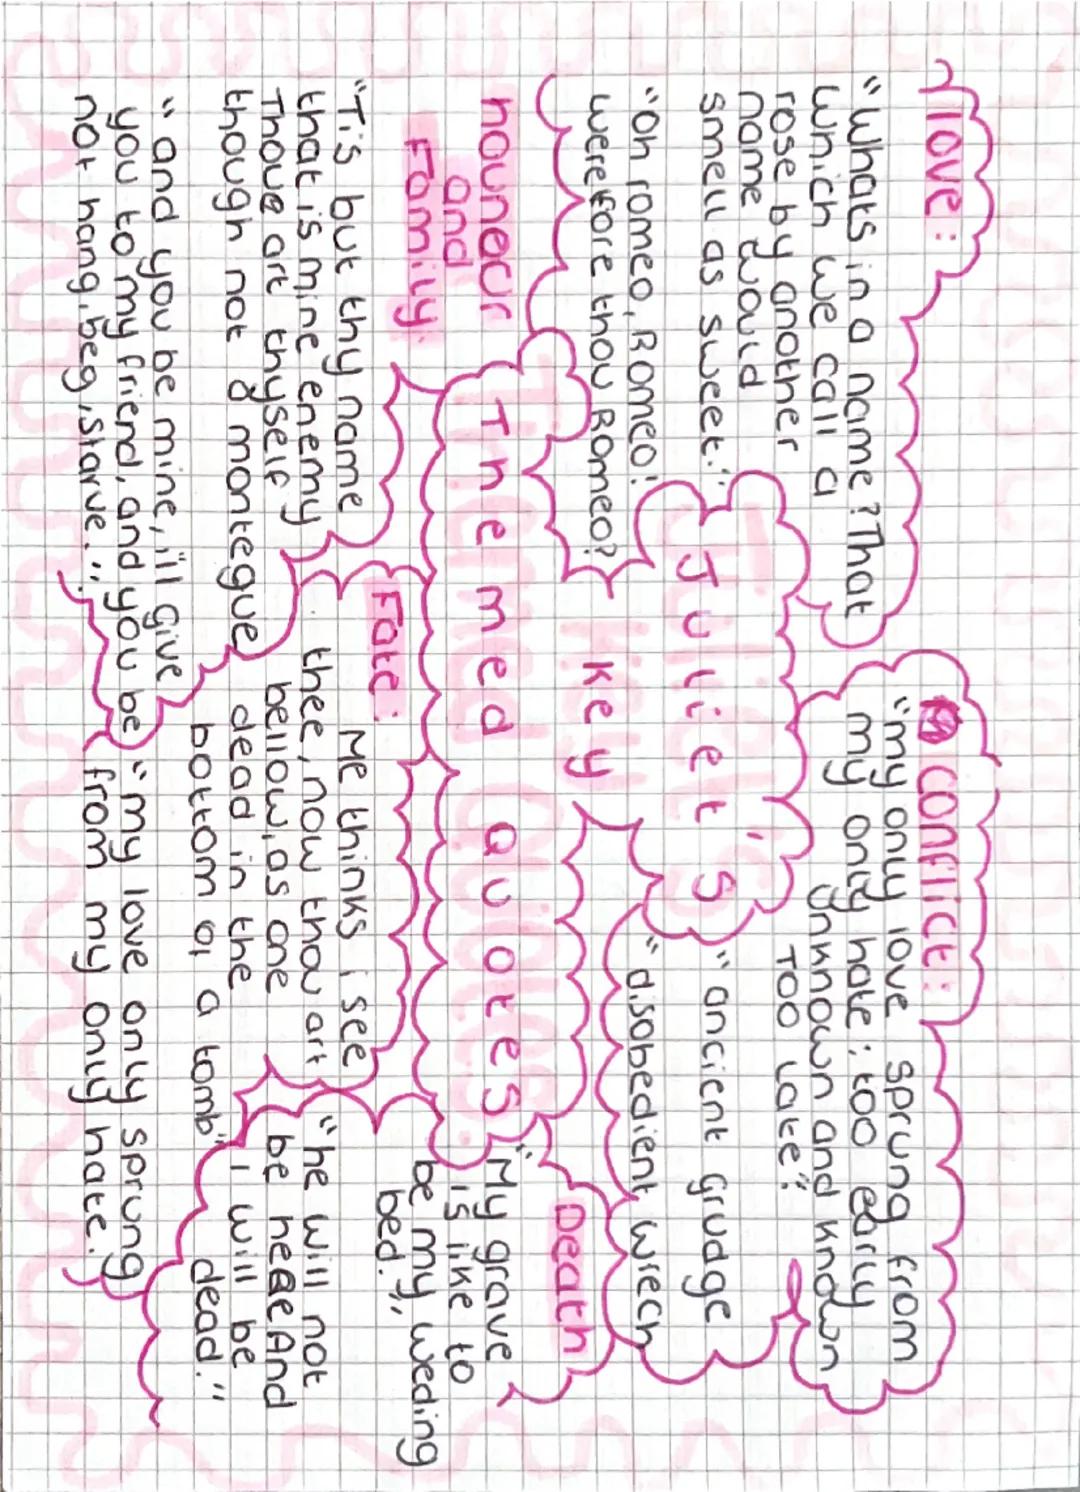 Juliet's
Key
Themed Quotes.
love:
"Whats in a name? That
which we call a
rose by another
name would
smell as sweet."
"Oh romeo, Romeo!
werefore thou Romeo?
Conflict:
"my only love sprung from
my only hate; too early
unknown and known
Too late"
"ancient grudge
"disobedient wrech
houner
and
Family.
"Tis but thy name
that is mine enemy
Thoue art thyself
though not a montegue
"and you be mine, i'll give
you to my friend, and you be
not hang, beg, starve."
Fate:
Me thinks i see
thee, now thou art
bellow, as one
dead in the
bottom of a tomb"
"my love only sprung
from my only hate.
Death
"My grave
is like to
be my weding
bed."
"he will not
be here And
i will be
dead."